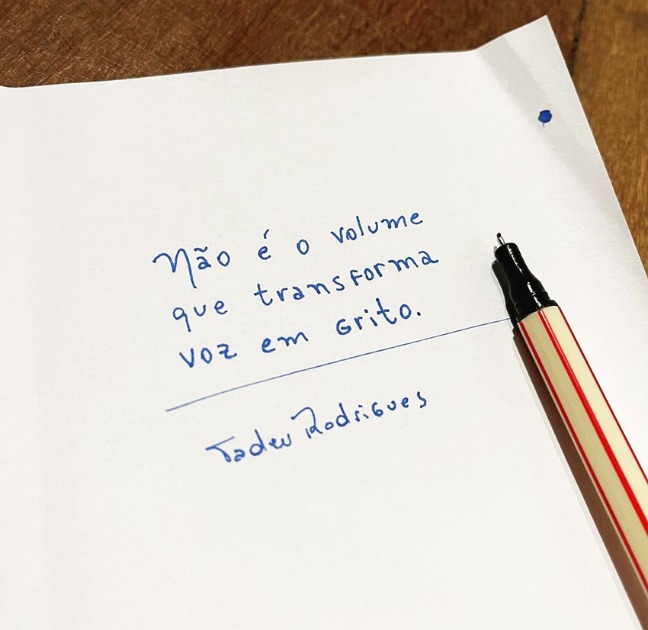 Não é o volume
que transforma
voz em grito.
Tadeu Rodrigues